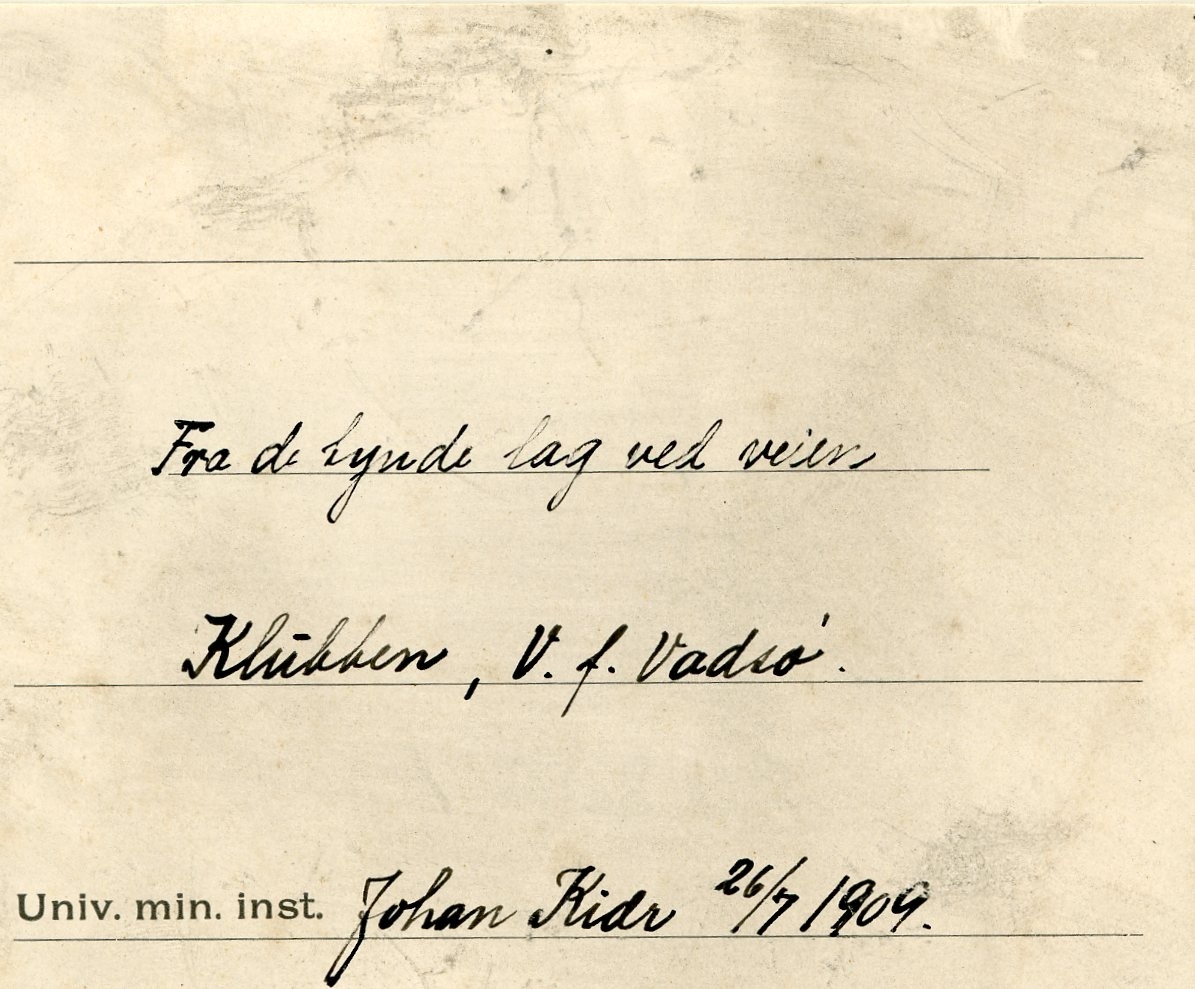 Fra de tynde lag ved veien
Klubben, V. f. Vadsö.
Univ. min. inst. Johan Kiær 26/7 1909.